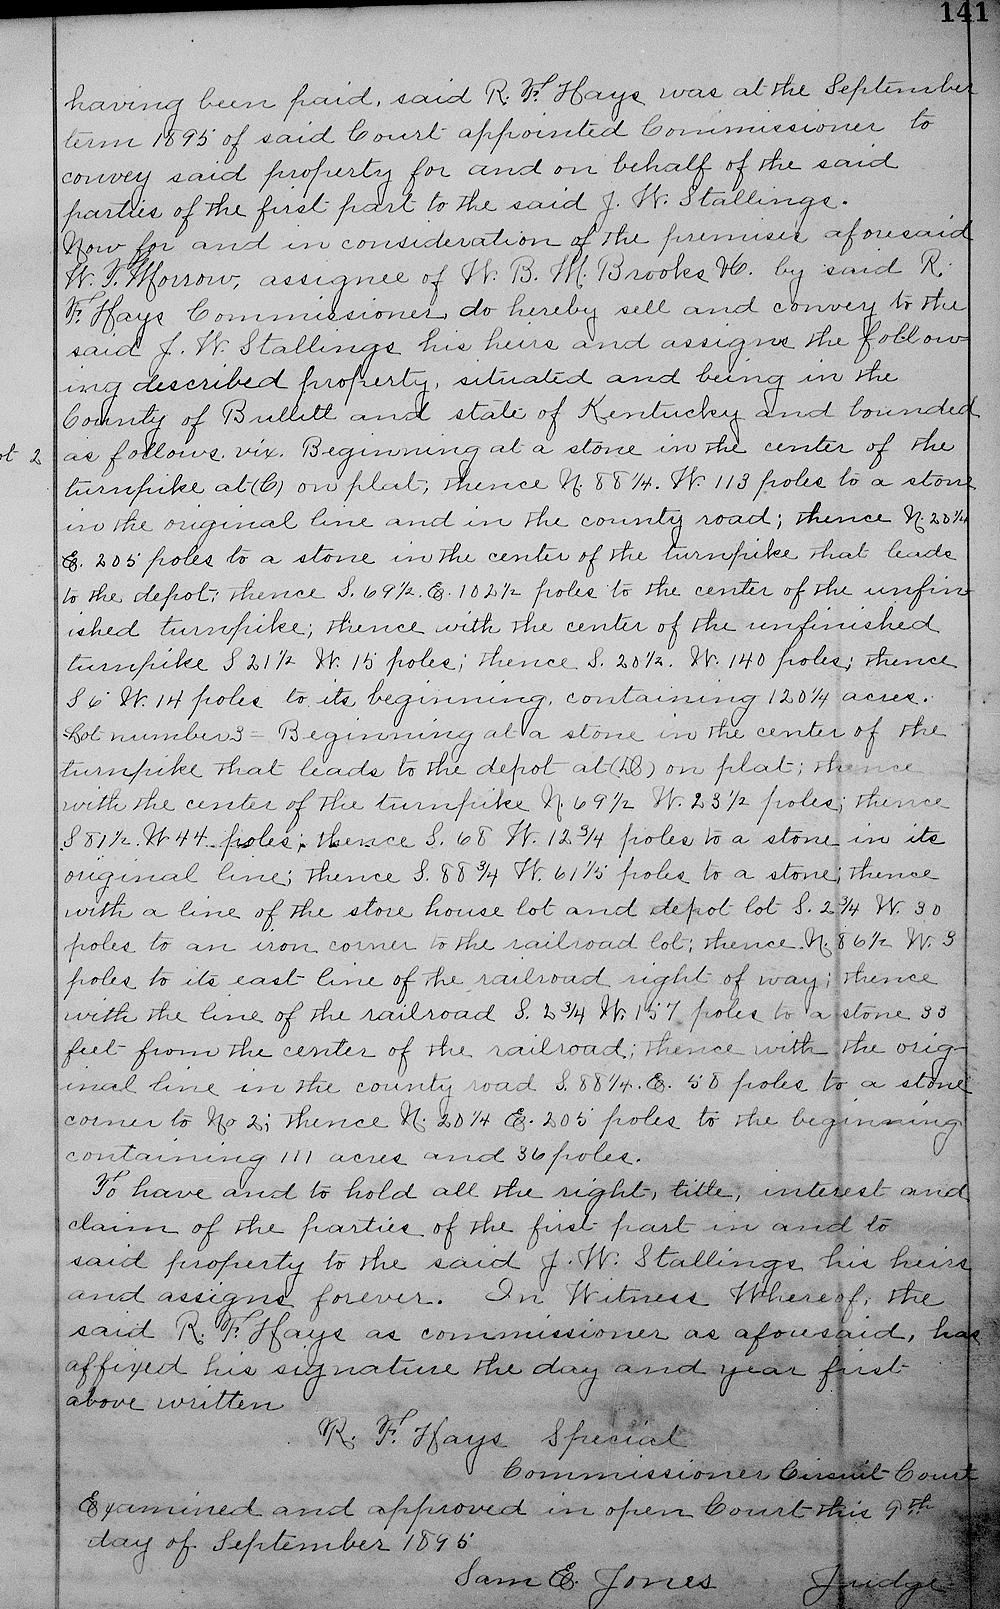 141
having been paid, said R. F. Hays was at the September
term 1895 of said Court appointed Commissioner to
convey said property for and on behalf of the said
parties of the first part to the said J. W. Stallings.
Now for and in consideration of the premises aforesaid
W. T. Morrow, assignee of W. B. M. Brooks &C. by said R.
F. Hays Commissioner do hereby sell and convey to the
said J. W. Stallings his heirs and assigns the follow-
ing described property, situated and being in the
County of Bullitt and state of Kentucky and bounded
ot 2 as follows. viz. Beginning at a stone in the center of the
turnpike at (C) on plat; thence N. 88 1/4. W. 113 poles to a stone
in the original line and in the county road; thence N. 20 1/4
E. 205 poles to a stone in the center of the turnpike that leads
to the depot; thence S. 69 1/2. E. 102 1/2 poles to the center of the unfin-
ished turnpike; thence with the center of the unfinished
turnpike S 21 1/2 W. 15 poles; thence S. 20 1/2. W. 140 poles; thence
S 6 W. 14 poles to its beginning, containing 120 1/4 acres.
Lot number 3 = Beginning at a stone in the center of the
turnpike that leads to the depot at () on plat; thence
with the center of the turnpike N. 69 1/2 W. 23 1/2 poles; thence
S 81 1/2. W 44 poles; thence S. 68 W. 12 3/4 poles to a stone in its
original line; thence S. 88 3/4 W. 61 1/5 poles to a stone; thence
with a line of the store house lot and depot lot S. 2 3/4 W. 30
poles to an iron corner to the railroad lot; thence N. 86 1/2 W. 3
poles to its east line of the railroad right of way; thence
with the line of the railroad S. 2 3/4 W. 157 poles to a stone 33
feet from the center of the railroad; thence with the orig-
inal line in the county road S. 88 1/4. E. 58 poles to a stone
corner to No 2; thence N. 20 1/4 E. 205 poles to the beginning
containing 111 acres and 36 poles.
To have and to hold all the right, title, interest and
claim of the parties of the first part in and to
said property to the said J. W. Stallings his heirs
and assigns forever. In Witness Whereof, the
said R. F. Hays as commissioner as aforesaid, has
affixed his signature the day and year first
above written
R. F. Hays Special
Commissioner Circuit Court
Examined and approved in open Court this 9th
day of September 1895
Sam E. Jones Judge